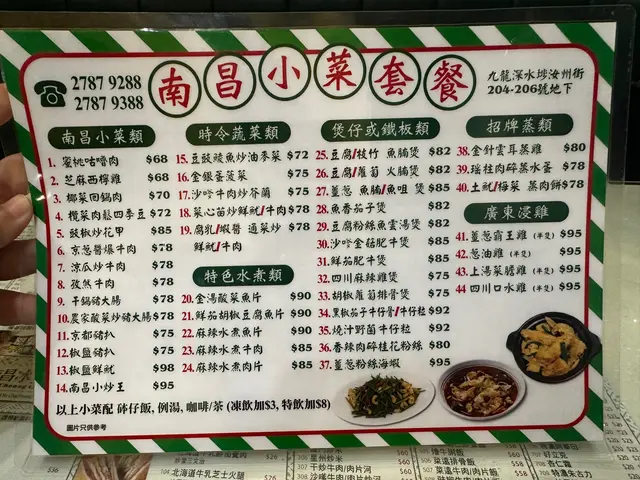 2787 9288
2787 9388
南昌小菜套餐
九龍深水埗汝州街
204-206號地下
南昌小菜類
1. 蜜桃咕嚕肉 $68
2. 芝麻西檸雞 $68
3. 椰菜回鍋肉 $70
4. 欖菜肉鬆四季豆 $72
5. 豉椒炒花甲 $85
6. 京葱醬爆牛肉 $78
7. 涼瓜炒牛肉 $78
8. 孜然牛肉 $78
9. 干鍋豬大腸 $78
10. 農家酸菜炒豬大腸 $78
11. 京都豬扒 $75
12. 椒鹽豬扒 $75
13. 椒鹽鮮魷 $98
14. 南昌小炒王 $95
時令蔬菜類
15. 豆豉鯪魚炒油麥菜 $72
16. 金銀蛋菠菜 $75
17. 沙嗲牛肉炒芥蘭 $75
18. 菜心苗炒鮮魷/牛肉 $78
19. 腐乳/蝦醬 通菜炒 $78
鮮魷/牛肉
特色水煮類
20. 金湯酸菜魚片 $90
21. 鮮茄胡椒豆腐魚片 $90
22. 麻辣水煮魚片 $90
23. 麻辣水煮牛肉 $85
24. 麻辣水煮肉片 $85
煲仔或鐵板類
25. 豆腐/枝竹 魚腩煲 $82
26. 豆腐/蘿蔔 火腩煲 $82
27. 薑葱 魚腩/魚咀 煲 $85
28. 魚香茄子煲 $82
29. 豆腐粉絲魚雲湯煲 $82
30. 沙嗲金菇肥牛煲 $85
31. 鮮茄肥牛煲 $85
32. 四川麻辣雞煲 $75
33. 胡椒蘿蔔排骨煲 $75
34. 黑椒茄子牛仔骨/牛仔粒 $92
35. 燒汁野菌牛仔粒 $92
36. 香辣肉碎桂花粉絲 $80
37. 薑葱粉絲海蝦 $95
招牌蒸類
38. 金針雲耳蒸雞 $80
39. 瑤柱肉碎蒸水蛋 $78
40. 土魷/梅菜 蒸肉餅 $78
廣東浸雞
41. 薑葱霸王雞 (半隻) $95
42. 葱油雞 (半隻) $95
43. 上湯菜膽雞 (半隻) $95
44. 四川口水雞 (半隻) $95
以上小菜配 砵仔飯, 例湯, 咖啡/茶 (凍飲加$3, 特飲加$8)
圖片只供參考